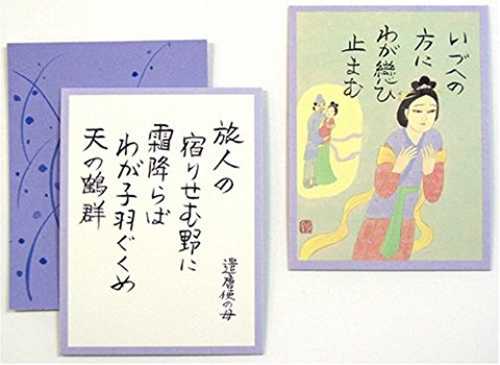 旅人の
宿りせむ野に
霜降らば
わが子羽ぐくめ
天の鶴群
遣唐使の母
いづへの
方に
わが戀ひ
止まむ